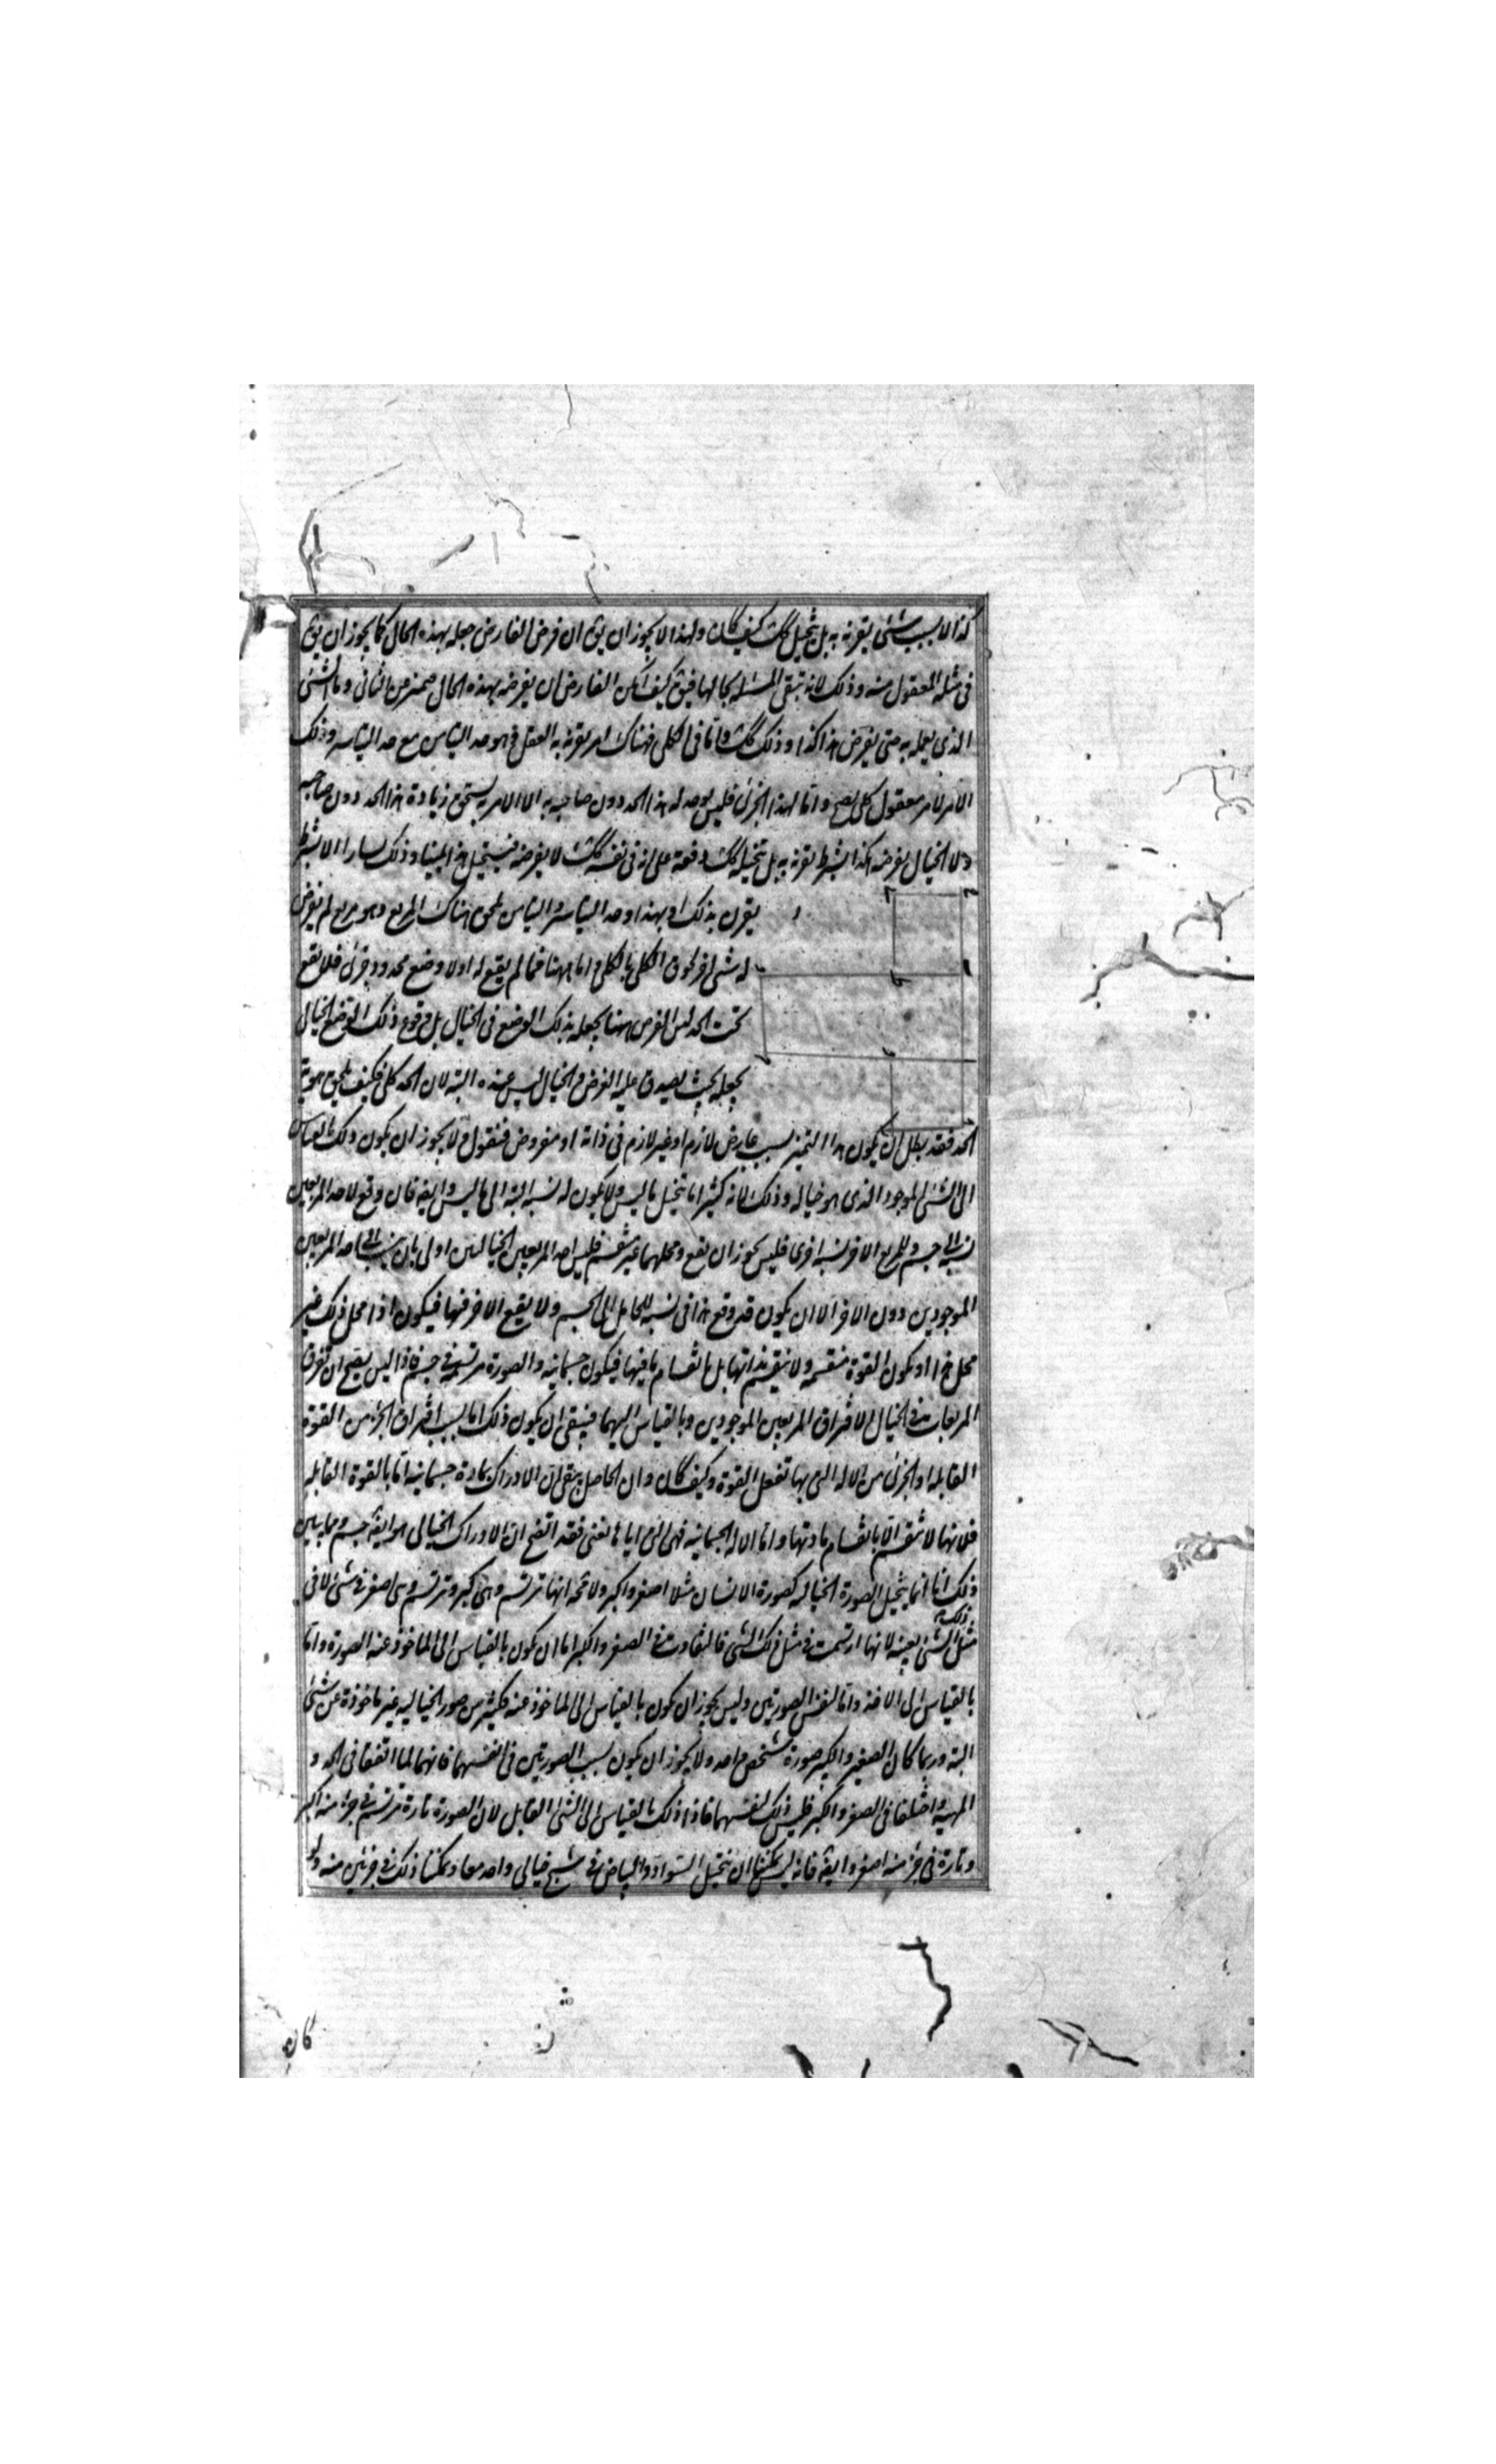 كذا الا بسبب شئ يقرنه به بل يتخيل كك كيف كان ولهذا لا يجوز ان يق ان فرض الفارض جعله بهذه الحال كما يجوز ان يق
فى مثله المعقول منه وذلك لانه تبقى المسئلة بحالها فيق كيف امكن الفارض ان يفرضه بهذه الحال متميز عن الثانى وما الشئ
الذى يعمله به حتى يفرض هذا كذا وذلك كك واما فى الكلى فهناك امر يقرنه به العقل وهو حد التيامن مع حد التياسر وذلك
الامر لامر معقول كلى يصح واما لهذا الجزئى فليس يوجد له هذا الحد دون صاحبه الا لامر به يستحق زيادة هذا الحد دون صاحبه
ولا الخيال يفرضه هكذا بشرط يقرنه به بل يتخيله كك دفعة على انه فى نفسه كك لا يفرضه فيتخيل هذا يمينا وذلك يسارا الا بشرط
يقرن بذلك او بهذا وحد التياسر والتيامن يلحق هناك المربع وهو مربع لم يعرض
له شئ اخر لحوق الكلى بالكلى واما ههنا فما لم يقع له اولا وضع محدود جزئى فلا يقع
تحت الحد ليس الفرض ههنا يجعله بذلك الوضع فى الخيال بل وقوع ذلك الوضع الخيالى
يجعله بحيث يصدق عليه الفرض والخيال ليس عنده البتة لان الحد كلى فكيف يلحق هو به
الحد فقد بطل ان يكون هذا التميز بسبب عارض لازم او غير لازم فى ذاته او مفروض فنقول ولا يجوز ان يكون ذلك بالقياس
الى الشئ الموجود الذى هو خياله وذلك لانه كثيرا ما يتخيل ما ليس ولا يكون له نسبة البتة الى ما ليس وايضا فان وقع لاحد المربعين
نسبة الى جسم وللمربع الاخر نسبة اخرى فليس يجوز ان تقع ومحلهما غير منقسم فليس احد المربعين الخياليين اولى بان ينسب الى احد المربعين
الموجودين دون الاخر الا ان يكون قد وقع هذا فى نسبة للحامل الى الجسم ولا يقع الاخر فيها فيكون اذا محل ذلك غير
محل هذا وتكون القوة منقسمة ولا ينقسم بذاتها بل بانقسام ما فيها فيكون جسمانية والصورة مرتسمة فى جسم فاذا ليس يصح ان تفترق
المربعات فى الخيال الا لافتراق المربعين الموجودين وبالقياس اليهما فبقى ان يكون ذلك اما بسبب افتراق الجزء من القوة
القابلة او الجزئى من الآلة التى بها تفعل القوة وكيف كان وان الحاصل يبقى ان الادراك بمادة جسمانية اما بالقوة القابلة
فلانها لا تنقسم الا بانقسام مادتها واما الآلة الجسمانية فهى التى اياها نعنى فقد اتضح ان الادراك الخيالى هو ايضا بجسم ومما يبين
ذلك انا انما نتخيل الصورة الخيالية كصورة الانسان مثلا اصغر واكبر ولا محة انها ترتسم وهى اكبر وترتسم وهى اصغر فى شئ لا فى
مثل ذلك الشئ بعينه لانها ارتسمت فى مثل ذلك الشئ فالتفاوت فى الصغر والكبر اما ان يكون بالقياس الى الماخوذ عنه الصورة واما
بالقياس الى الاخذ واما لنفس الصورتين وليس يجوز ان يكون بالقياس الى الماخوذ عنه فكثير من صور الخيالية غير ماخوذة عن شئ
البتة وربما كان الصغير والكبير صورة شخص واحد ولا يجوز ان يكون بسبب الصورتين فى انفسهما فانهما لما اتفقا فى الحد و
المهية واختلفا فى الصغر والكبر فليس ذلك لنفسهما فاذا ذلك بالقياس الى الشئ القابل لان الصورة تارة ترتسم فى جزء منه اكبر
وتارة فى جزء منه اصغر وايضا فانه ليس يمكننا ان نتخيل السواد والبياض فى شبح خيالى واحد معا ويمكننا ذلك فى جزئين منه ولو
كان